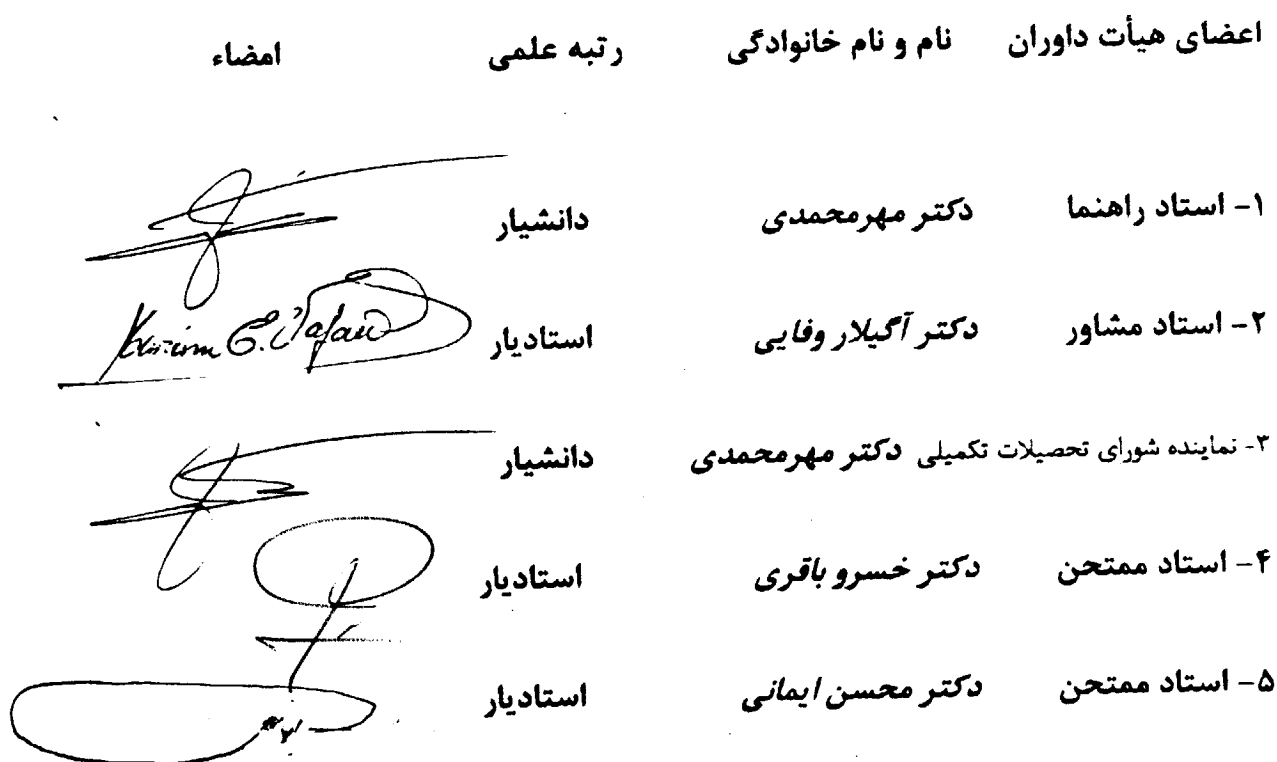 اعضای هیأت داوران نام و نام خانوادگی رتبه علمی امضاء
۱- استاد راهنما دکتر مهرمحمدی دانشیار
۲- استاد مشاور دکتر آگیلار وفایی استادیار
۳- نماینده شورای تحصیلات تکمیلی دکتر مهرمحمدی دانشیار
۴- استاد ممتحن دکتر خسرو باقری استادیار
۵- استاد ممتحن دکتر محسن ایمانی استادیار